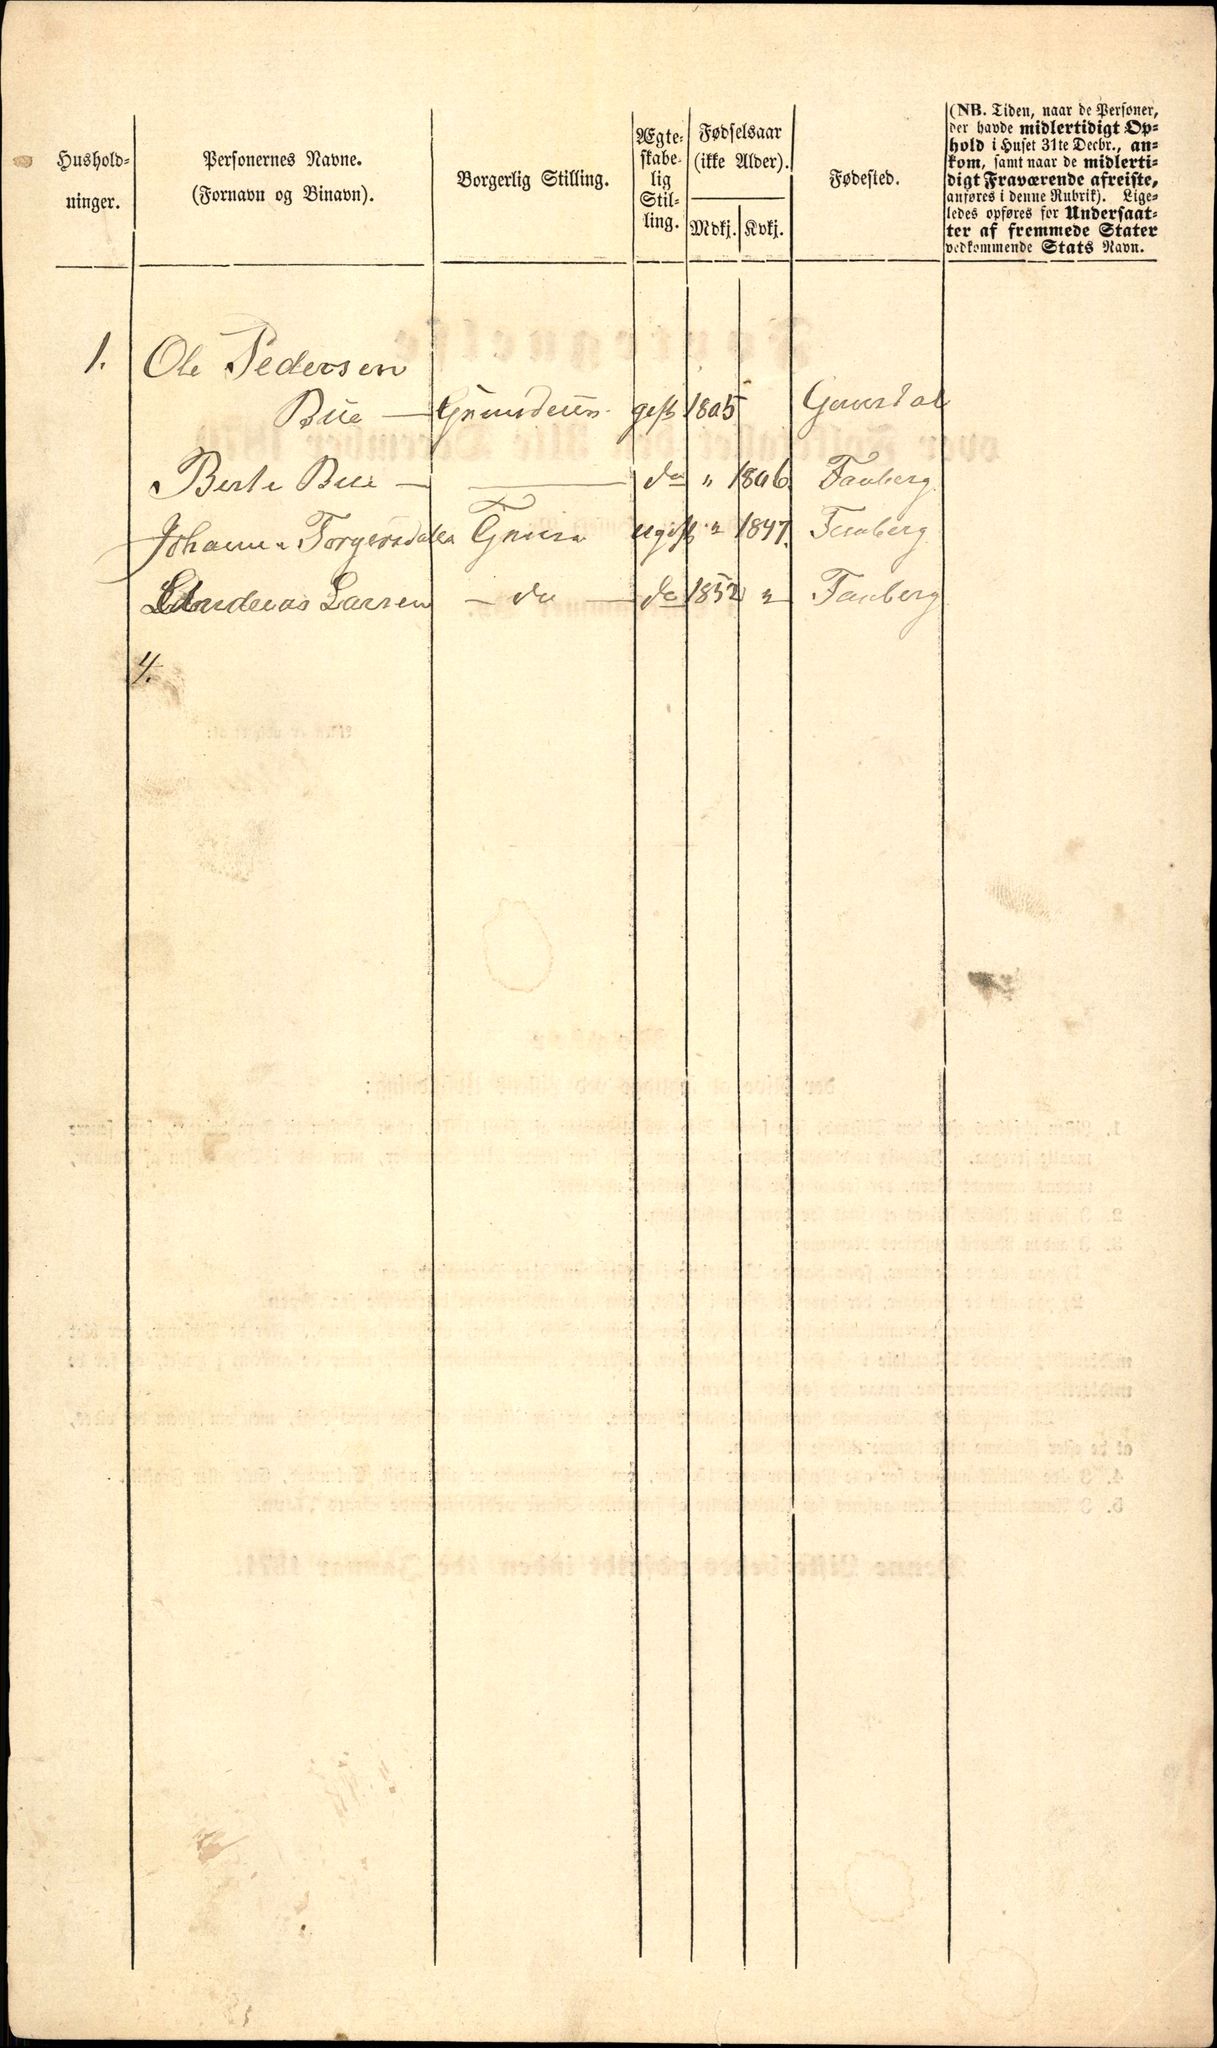 Hushold-
ninger.
Personernes Navne.
(Fornavn og Binavn).
Borgerlig Stilling.
Ægte-
skabe-
lig
Stil-
ling.
Fødselsaar
(ikke Alder).
Mdkj. Kvkj.
Fødested.
(NB. Tiden, naar de Personer,
der havde midlertidigt Op-
hold i Huset 31te Decbr., an-
kom, samt naar de midlerti-
digt Fraværende afreiste,
anføres i denne Rubrik). Lige-
ledes opføres for Undersaat-
ter af fremmede Stater
vedkommende Stats Navn.
1. Ole Pedersen
Bue — gift 1805
Bue — do " 1806. Faaberg
Torgersdatter ugift " 1847. Faaberg
Andreas Larsen — do — do 1852 " Faaberg
4.